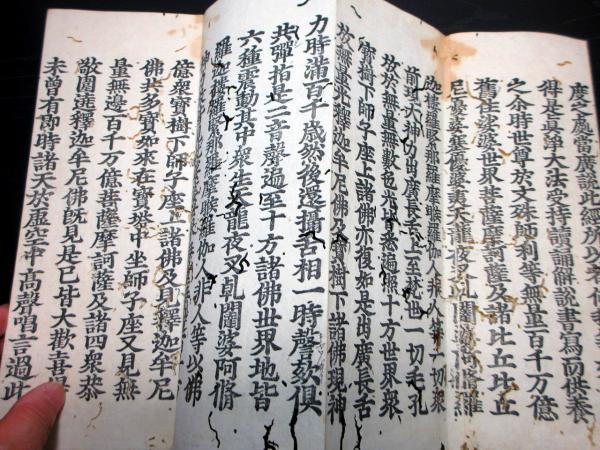 度之處當廣說此經所以者何
得是真淨大法受持讀誦解說書寫而供養
之爾時世尊於文殊師利等無量百千万億
舊住娑婆世界菩薩摩訶薩及諸比丘比丘
尼優婆塞優婆夷天龍夜叉乹闥婆阿脩羅
迦樓羅緊那羅摩睺羅伽人非人等一切衆
前現大神力出廣長舌上至梵世一切毛孔
放於無量無數色光皆悉遍照十方世界衆
寳樹下師子座上諸佛亦復如是出廣長舌
放無量光釋迦牟尼佛及寳樹下諸佛現神
力時滿百千歲然後還攝舌相一時謦欬俱
共彈指是二音聲遍至十方諸佛世界地皆
六種震動其中衆生天龍夜叉乹闥婆阿脩
羅迦樓羅緊那羅摩睺羅伽人非人等以佛
億衆寳樹下師子座上諸佛及見釋迦牟尼
佛共多寳如來在寳塔中坐師子座又見無
量無邊百千万億菩薩摩訶薩及諸四衆恭
敬圍遶釋迦牟尼佛既見是已皆大歡喜
未曾有即時諸天於虛空中高聲唱言過此